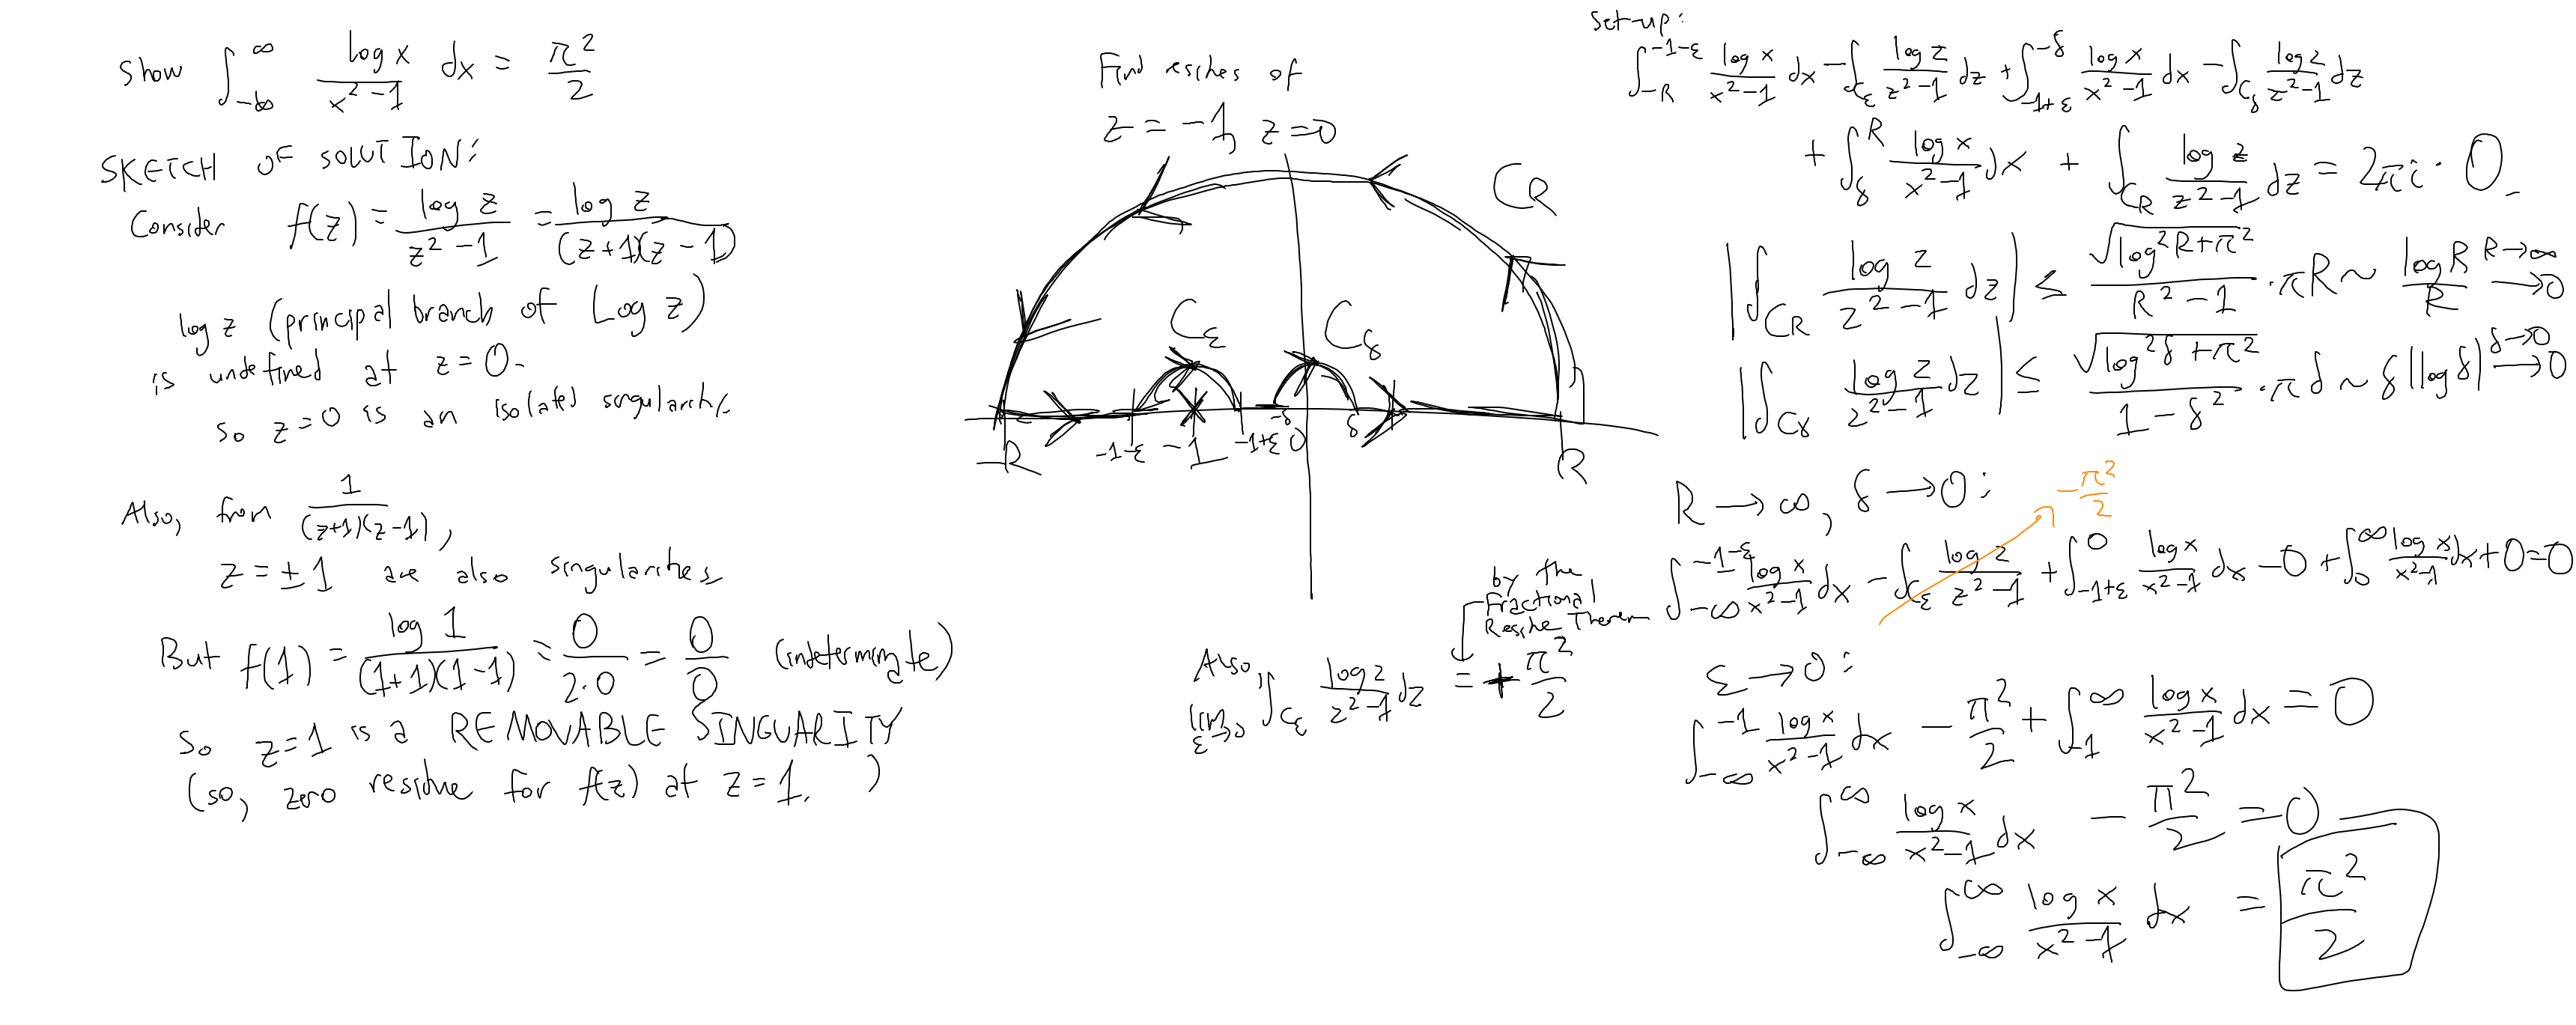 Show ∫_{-∞}^{∞} log x / (x² - 1) dx = π²/2
SKETCH OF SOLUTION:
Consider f(z) = log z / (z² - 1) = log z / ((z+1)(z-1))
log z (principal branch of Log z)
is undefined at z = 0.
So z=0 is an isolated singularity.
Also, from 1/((z+1)(z-1)),
z = ±1 are also singularities
But f(1) = log 1 / ((1+1)(1-1)) = 0/(2·0) = 0/0 (indeterminate)
So z=1 is a REMOVABLE SINGULARITY
(so, zero residue for f(z) at z=1.)
Find residues of
z = -1, z=0
C_R
C_ε C_δ
-R -1-ε -1 -1+ε -δ 0 δ R
Also,
lim_{ε→0} ∫_{C_ε} log z / (z² - 1) dz = + π²/2
by the
Fractional
Residue Theorem
Set-up:
∫_{-R}^{-1-ε} log x / (x² - 1) dx - ∫_{C_ε} log z / (z² - 1) dz + ∫_{-1+ε}^{-δ} log x / (x² - 1) dx - ∫_{C_δ} log z / (z² - 1) dz
+ ∫_{δ}^{R} log x / (x² - 1) dx + ∫_{C_R} log z / (z² - 1) dz = 2πi · 0.
|∫_{C_R} log z / (z² - 1) dz| ≤ √(log² R + π²) / (R² - 1) · πR ~ log R / R →0 R→∞
|∫_{C_δ} log z / (z² - 1) dz| ≤ √(log² δ + π²) / (1 - δ²) · πδ ~ δ |log δ| →0 δ→0
R → ∞, δ → 0:
-π²/2
∫_{-∞}^{-1-ε} log x / (x² - 1) dx - ∫_{C_ε} log z / (z² - 1) + ∫_{-1+ε}^{0} log x / (x² - 1) dx - 0 + ∫_{0}^{∞} log x / (x² - 1) dx + 0 = 0
ε → 0:
∫_{-∞}^{-1} log x / (x² - 1) dx - π²/2 + ∫_{-1}^{∞} log x / (x² - 1) dx = 0
∫_{-∞}^{∞} log x / (x² - 1) dx - π²/2 = 0
∫_{-∞}^{∞} log x / (x² - 1) dx = π²/2